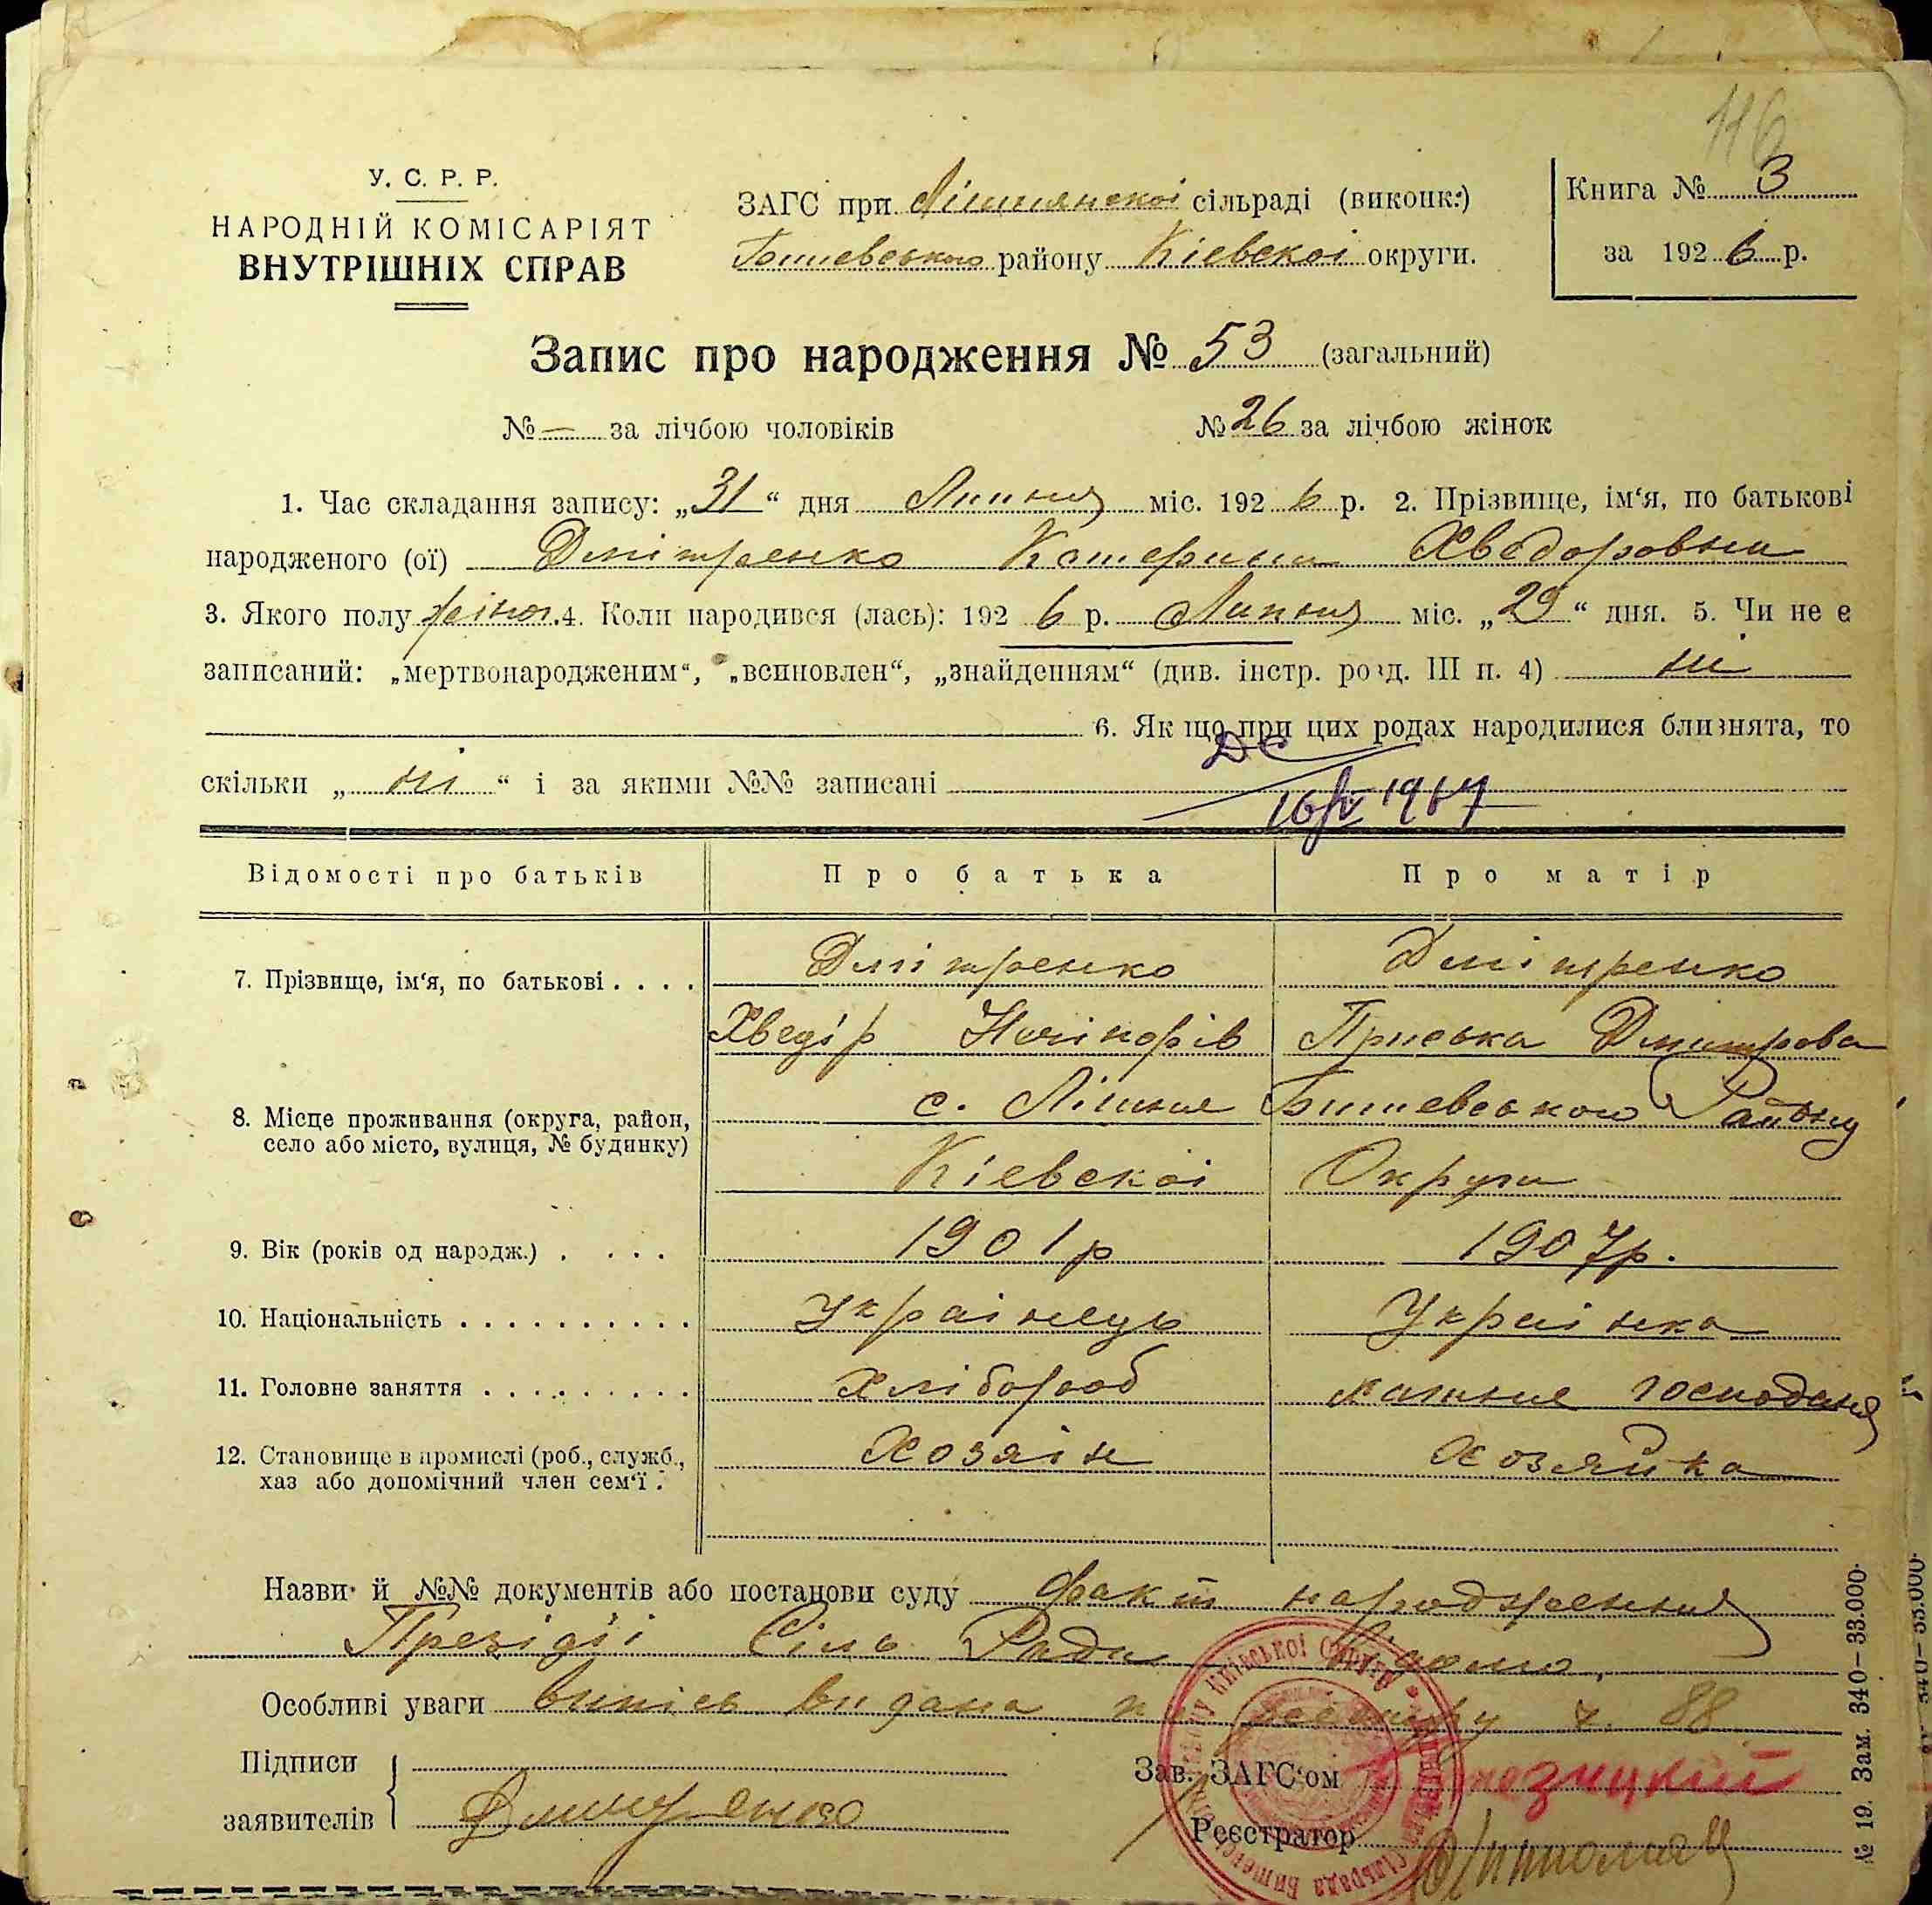 116
У. С. Р. Р.
НАРОДНІЙ КОМІСАРІЯТ
ВНУТРІШНІХ СПРАВ
ЗАГС при Лішнянскоі сільраді (виконк.)
Бишевського району Кіевскоі округи.
Книга № 3
за 1926 р.
Запис про народження № 53 (загальний)
№ — за лічбою чоловіків № 26 за лічбою жінок
1. Час складання запису: „31“ дня Липня міс. 1926 р. 2. Прізвище, ім‘я, по батькові
народженого (ої) Дмітренко Катерина Хведоровна
3. Якого полу жіноч. 4. Коли народився (лась): 1926 р. Липня міс. „29“ дня. 5. Чи не є
записаний: „мертвонародженим“, „всиновлен“, „знайденням“ (див. інстр. розд. III п. 4) ні
6. Як що при цих родах народилися близнята, то
скільки „ні“ і за якими №№ записані
Відомості про батьків Про батька Про матір
7. Прізвище, ім‘я, по батькові . . . . Дмітренко Дмітренко
Хведір Нечіпорів Приська Дмитрова
8. Місце проживання (округа, район, с. Лішне Бишевського Району
село або місто, вулиця, № будинку)
Кіевскоі Округи
9. Вік (років од народж.) . . . . 1901р 1907р.
10. Національність . . . . . . . . . . Украінець Украінка
11. Головне заняття . . . . . . . . . . Хлібороб хатне господаня
12. Становище в промислі (роб., служб., Хозяін хозяйка
хаз або допомічний член сем‘ї .
Назви й №№ документів або постанови суду факт народження
Презідії Сіль Ради відомо.
Особливі уваги випісь видана по реестру ч. 88
Підписи
заявителів Дмитренко
Зав. ЗАГС‘ом
Реєстратор
№ 19. Зам. 340–33.000.